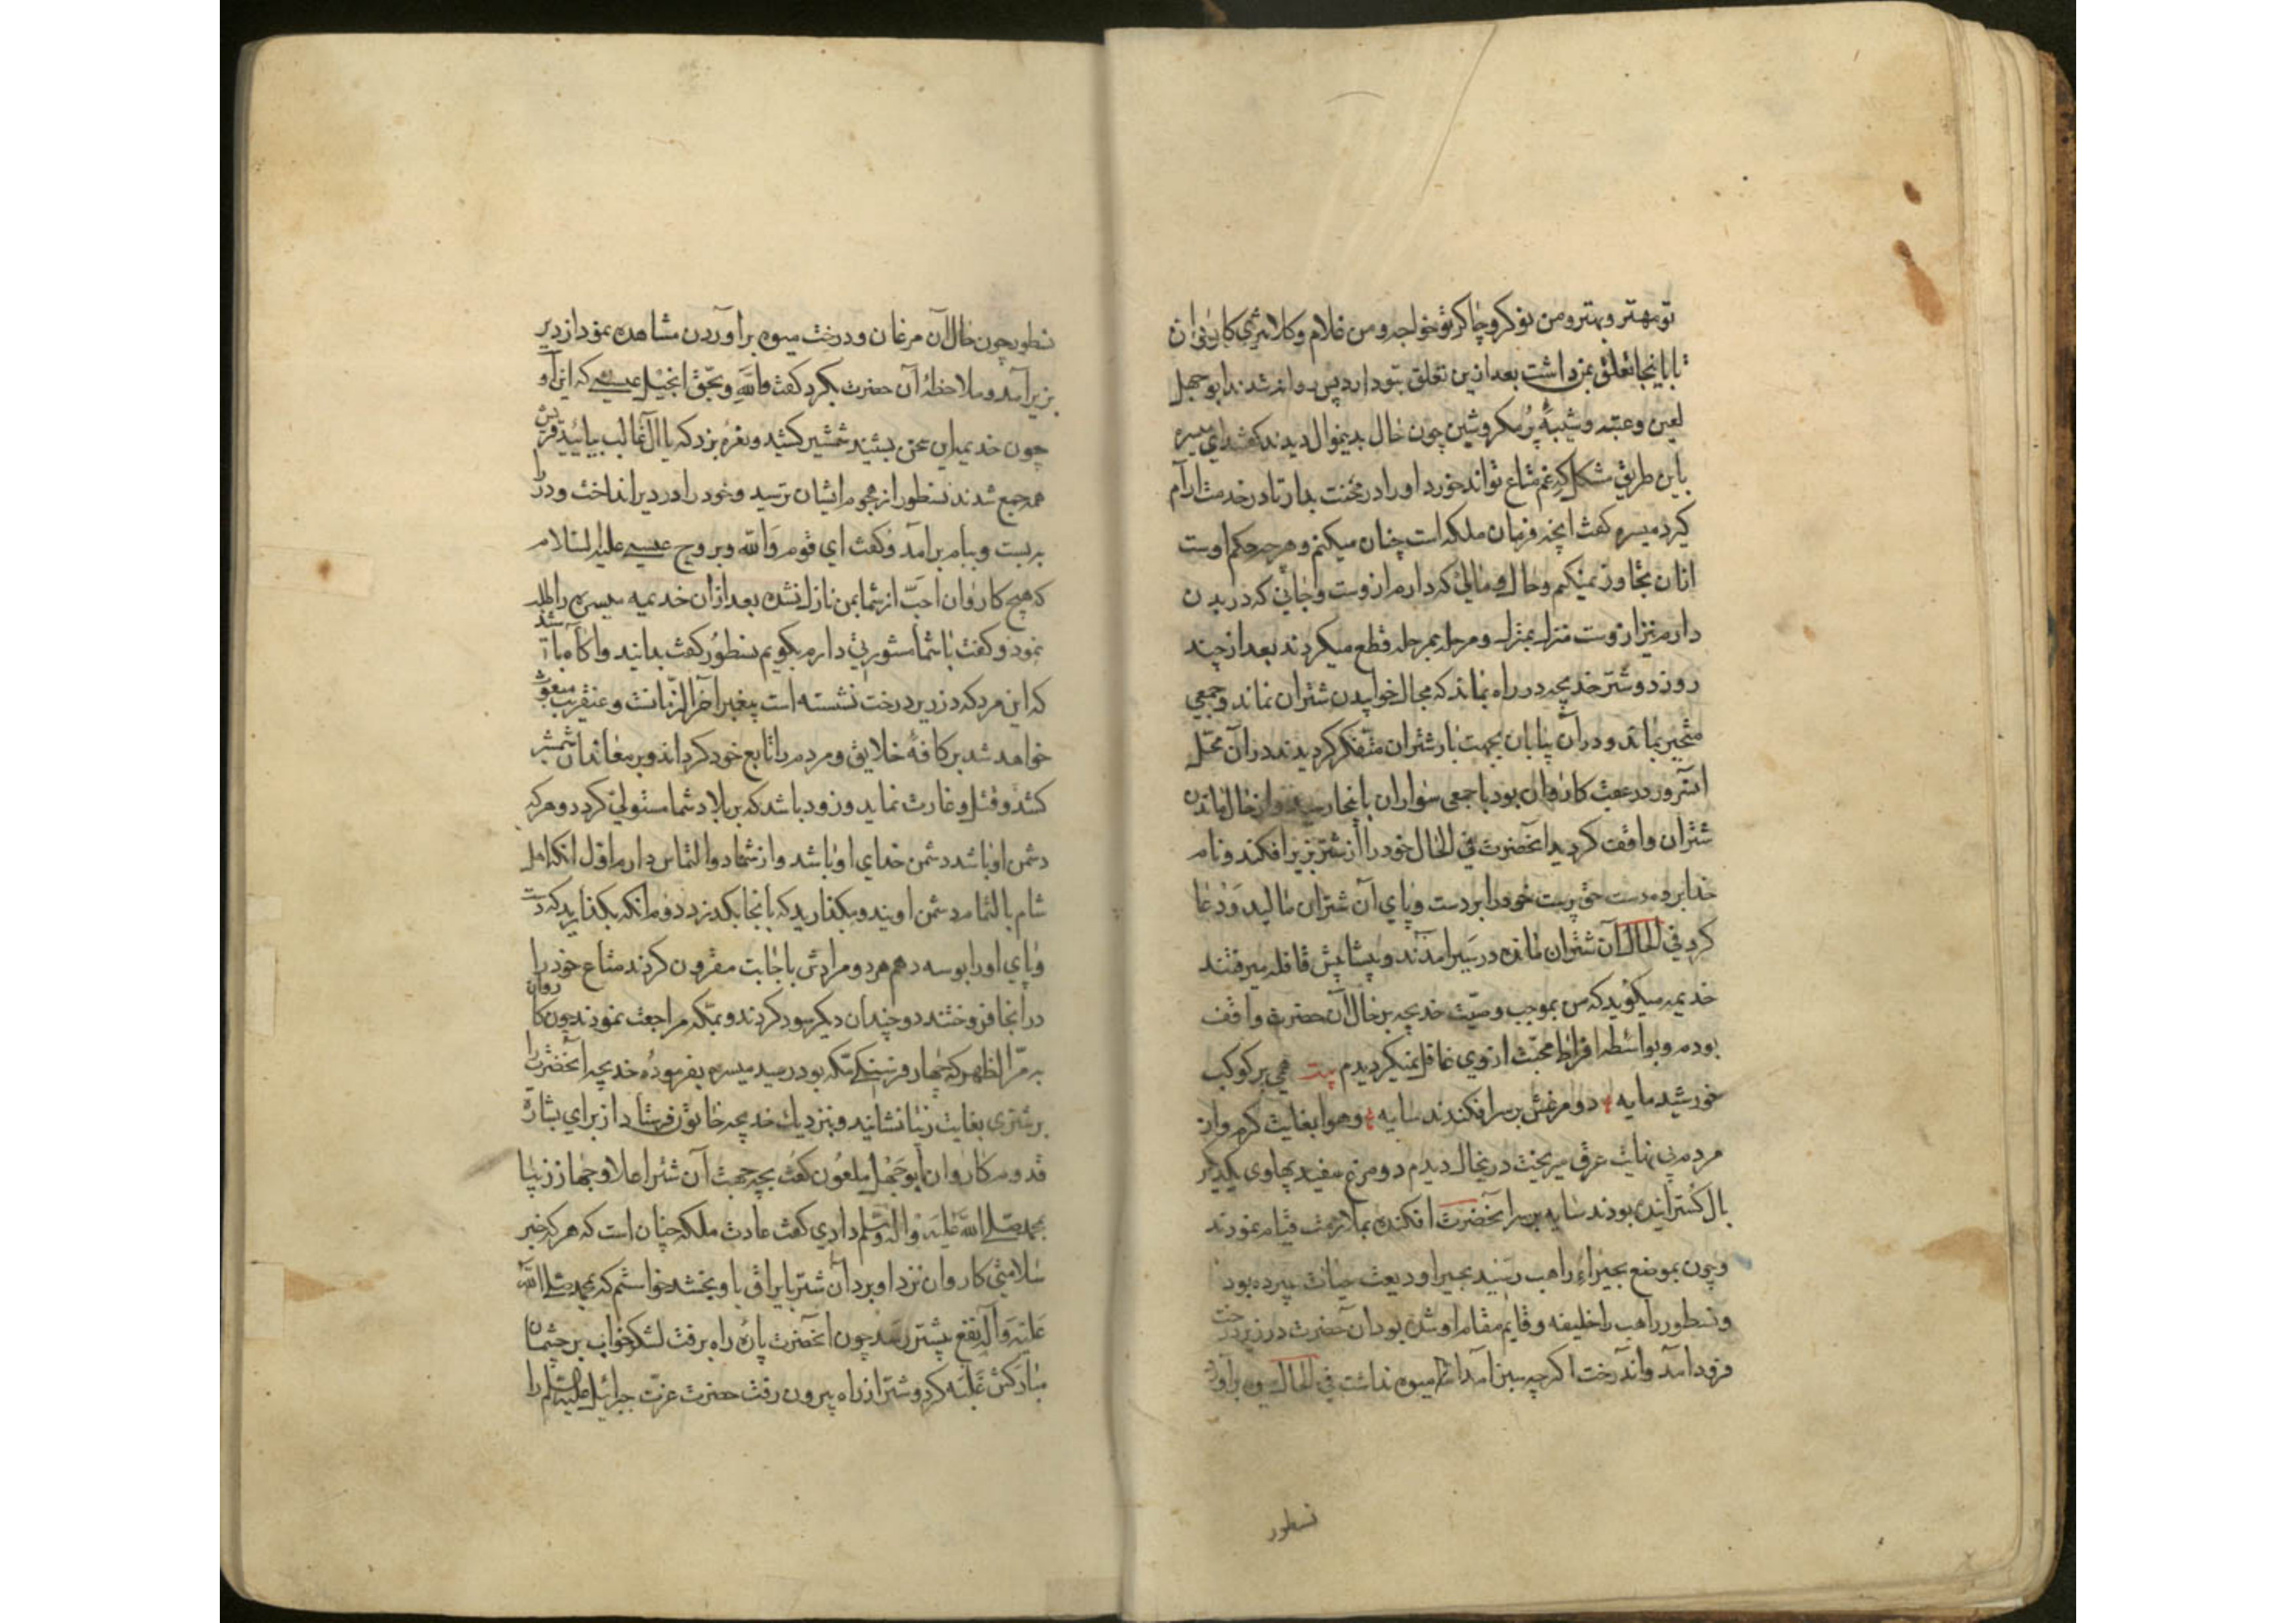 تو مهتر و بهتر و من نوکر و چاکر تو خواجه و من غلام و کار این کاروان
تا باینجا تعلق بمن داشت بعد ازین تعلق بتو دارد پس روانه شدند ابوجهل
لعین و عتبه و شیبهٔ پُر مکر و شین چون حال بدینموال دیدند گفتند ای میسره
باین طریق مشکل که غم متاع تواند خورد او را در محنت بدار تا در خدمت آرام
گیرد میسره گفت انچه فرمان ملکه است چنان میکنم و هرچه حکم اوست
ازان تجاوز نمیکنم و حال و مالی که دارم ازوست و جانی که در بدن
دارم نیز ازوست منزل بمنزل و مرحله بمرحله قطع میکردند بعد از چند
روز دو شتر خدیجه در راه بماند که مجال خوابیدن شتران نماند و جمعی
متحیر بماند و در آن بیابان بجهت بار شتران متفکر کردیدند در آن محل
آنسرور در عقب کاروان بود با جمعی سواران بانجا رسید و از حال ماندن
شتران واقف کردید آنحضرت فی الحال خود را از شتر بزیر افکند و نام
خدا برد و دست حق پرست خود را بر دست و پای آن شتران مالید و دعا
کرد فی الحال آن شتران مانده در سیر امدند و پیشاپیش قافله میرفتند
خدیمه میگوید که من بموجب وصیّت خدیجه بر حال آن حضرت واقف
بودم و بواسطه افراط محبّت از وی غافل نمیکردیدم بیت همی بر کوکب
خورشید مایه دو مرغش بر سر افکندند سایه و هوا بغایت کرم و از
مردم بی نهایت عرق میریخت درینحال دیدم دو مرغ سفید پهلوی یکدیگر
بال کسترانیده بودند سایه بر سر آنحضرت افکنده بملازمت قیام نمودند
و چون بموضع بحیراء راهب رسیند بحیرا ودیعت حیات سپرده بود
و نسطور راهب را خلیفه و قایم مقام او شده بود آن حضرت در زیر درخت
فرود آمد و آن درخت اگرچه سبز آمد اما میوه نداشت فی الحال میوه برآورد
نسطور
نسطور چون حال آن مرغان و درخت میوه برآوردن مشاهده نمود از دیر
بزیر آمد و ملاحظهٔ آن حضرت بکرد گفت والله و بحق انجیل عیسی که این اوست
چون خدیمه این سخن بشنید شمشیر کشید و نعره بزد که یا آل غالب بیایید قریش
همه جمع شدند نسطور از هجوم ایشان ترسید و خود را در دیر انداخت و در را
به بست و ببام برآمد و گفت ای قوم والله و بروح عیسی علیه السلام
که هیچ کاروان احبّ از شما بمن نازل نشده بعد ازان خدیمه میسره را طلب
نمود و گفت با شما مشورتی دارم بگویم نسطور گفت بدانید و آکاه باشید
که این مرد که در زیر درخت نشسته است پیغمبر آخر الزمانست و عنقریب مبعوث
خواهد شد بر کافهٔ خلایق و مردم را تابع خود کرداند و بر معاندان شمشیر
کشد و قتل و غارت نماید و زود باشد که بر بلاد شما مستولی گردد و هر که
دشمن او باشد دشمن خدای او باشد و از شما دو التماس دارم اول آنکه اهل
شام بالتمام دشمن اویند و مگذارید که بانجا بگذرد دوم آنکه بگذارید که دست
و پای او را بوسه دهم هر دو مرادش باجابت مقرون کردند متاع خود را
در آنجا فروختند دوچندان دیگر سود کردند و بمکه مراجعت نمودند چون کاروان
به مرّ الظهر که چهار فرسنگی مکه بود رسید میسره بفرمودهٔ خدیجه آنحضرت را
بر شتری بغایت زیبا نشانید و بنزدیک خدیجه خاتون فرستاد از برای بشارة
قدوم کاروان ابوجهل ملعون گفت بچه جهت آن شتر اعلا و جهاز زیبا
بمحمد صلی الله علیه وآله وسلم دادی گفت عادت ملکه چنان است که هر که خبر
سلامتی کاروان نزد او برد آن شتر با یراق باو بخشد خواستم که بمحمد صلی الله
علیه وآله نفع بیشتر رسد چون آنحضرت پارهٔ راه برفت لشکر خواب بر چشمان
مبارکش غلبه کرد و شتر از راه بیرون رفت حضرت عزت جبرائیل علیه السلم را